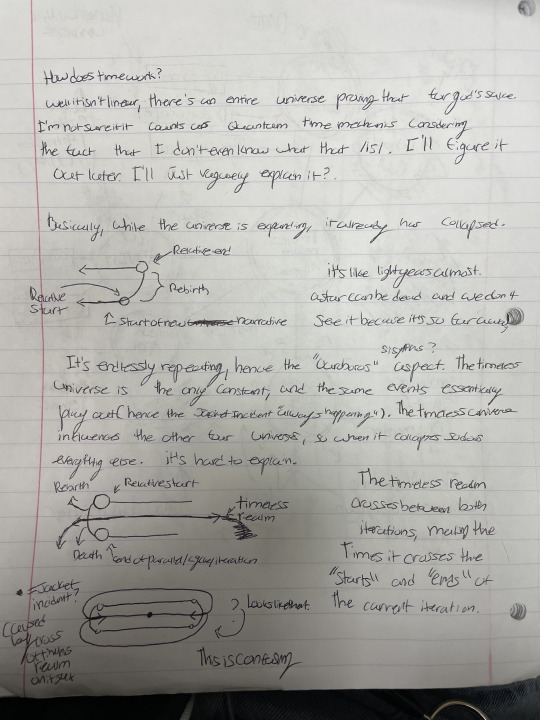 How does time work?
well it isn't linear, there's an entire universe proving that for god's sake.
I'm not sure if it counts as Quantum time mechanis considering
the fact that I don't even know what that /is/. I'll figure it
out later. I'll just vaguely explain it?
Basically, while the universe is expanding, it already has collapsed.
Relative end
Rebirth
Relative
Start
Start of new narrative
it's like lightyears almost.
a star can be dead and we don't
see it because it's so far away
sisyphus?
It's endlessly repeating, hence the "Ouroboros" aspect. The timeless
universe is the only constant, and the same events essentially
play out (hence the Jacket Incident "always happening"). The timeless universe
influences the other four universes, so when it collapses so does
everything else. it's hard to explain.
Rebirth
Relative start
timeless
realm
Death
End of parallel/cycle/iteration
The timeless realm
crosses between both
iterations, making the
Times it crosses the
"Starts" and "ends" of
the current iteration.
= Jacket
incident?
(caused
by cross
of timeless
realm
on itself
? Looks like that
This is confusing